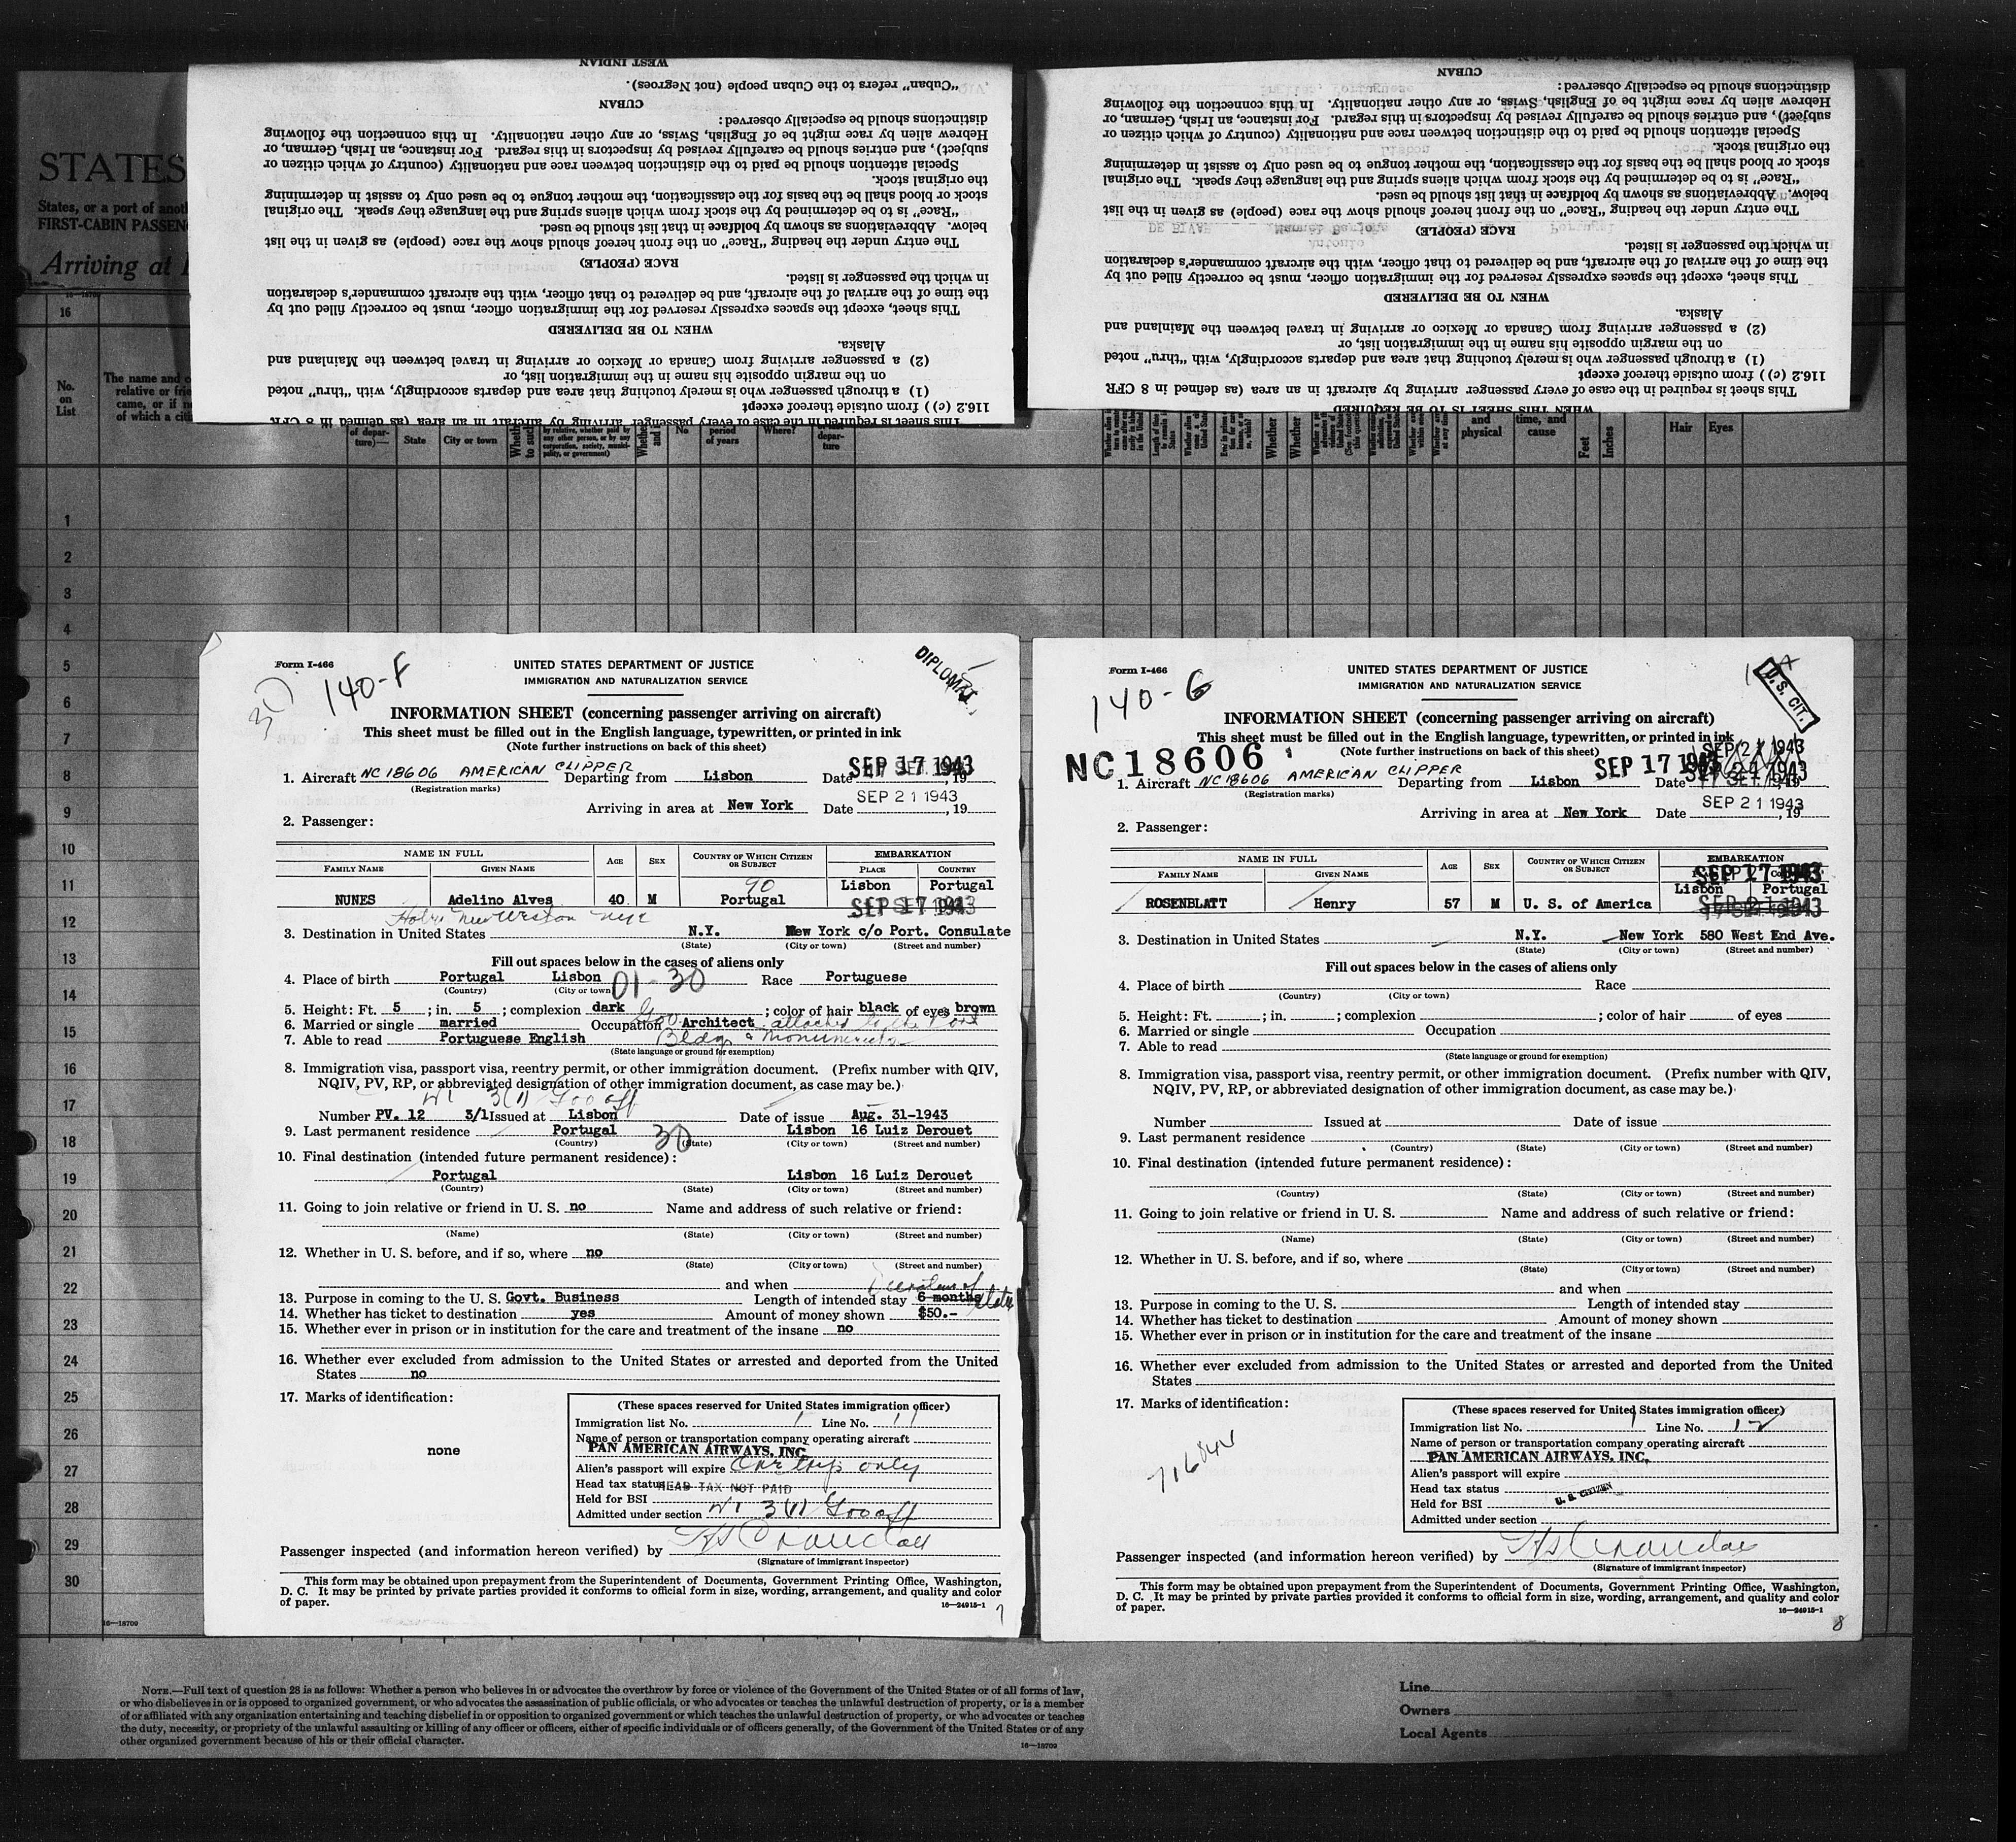 WEST INDIAN
"Cuban" refers to the Cuban people (not Negroes).
CUBAN
distinctions should be especially observed:
Hebrew alien by race might be of English, Swiss, or any other nationality. In this connection the following
subject), and entries should be carefully revised by inspectors in this regard. For instance, an Irish, German, or
Special attention should be paid to the distinction between race and nationality (country of which citizen or
the original stock.
stock or blood shall be the basis for the classification, the mother tongue to be used only to assist in determining
"Race" is to be determined by the stock from which aliens spring and the language they speak. The original
below. Abbreviations as shown by boldface in that list should be used.
The entry under the heading "Race" on the front hereof should show the race (people) as given in the list
RACE (PEOPLE)
in which the passenger is listed.
the time of the arrival of the aircraft, and be delivered to that officer, with the aircraft commander's declaration
This sheet, except the spaces expressly reserved for the immigration officer, must be correctly filled out by
WHEN TO BE DELIVERED
Alaska.
(2) a passenger arriving from Canada or Mexico or arriving in travel between the Mainland and
on the margin opposite his name in the immigration list, or
(1) a through passenger who is merely touching that area and departs accordingly, with "thru" noted
116.2 (c) ) from outside thereof except
This sheet is required in the case of every passenger arriving by aircraft in an area (as defined in 8 CFR
CUBAN
distinctions should be especially observed:
Hebrew alien by race might be of English, Swiss, or any other nationality. In this connection the following
subject), and entries should be carefully revised by inspectors in this regard. For instance, an Irish, German, or
Special attention should be paid to the distinction between race and nationality (country of which citizen or
the original stock.
stock or blood shall be the basis for the classification, the mother tongue to be used only to assist in determining
"Race" is to be determined by the stock from which aliens spring and the language they speak. The original
below. Abbreviations as shown by boldface in that list should be used.
The entry under the heading "Race" on the front hereof should show the race (people) as given in the list
RACE (PEOPLE)
in which the passenger is listed.
the time of the arrival of the aircraft, and be delivered to that officer, with the aircraft commander's declaration
This sheet, except the spaces expressly reserved for the immigration officer, must be correctly filled out by
WHEN TO BE DELIVERED
Alaska.
(2) a passenger arriving from Canada or Mexico or arriving in travel between the Mainland and
on the margin opposite his name in the immigration list, or
(1) a through passenger who is merely touching that area and departs accordingly, with "thru" noted
116.2 (c) ) from outside thereof except
This sheet is required in the case of every passenger arriving by aircraft in an area (as defined in 8 CFR
WHEN THIS SHEET IS TO BE REQUIRED
STATES
States, or a port of
FIRST-CABIN
Arriving at
16
No. on List
The name and
relative or
came, or if
of which a
State City or town No period of years Where?
and physical time, and cause Feet Inches Hair Eyes
1
2
3
4
5
6
7
8
9
10
11
12
13
14
15
16
17
18
19
20
21
22
23
24
25
26
27
28
29
30
16—18709
Form I-466
140-F
3(1)
DIPLOMAT
UNITED STATES DEPARTMENT OF JUSTICE
IMMIGRATION AND NATURALIZATION SERVICE
INFORMATION SHEET (concerning passenger arriving on aircraft)
This sheet must be filled out in the English language, typewritten, or printed in ink
(Note further instructions on back of this sheet)
1. Aircraft NC 18606 AMERICAN CLIPPER Departing from Lisbon Date SEP 17 1943, 19
(Registration marks)
Arriving in area at New York Date SEP 21 1943, 19
2. Passenger:
NAME IN FULL AGE SEX COUNTRY OF WHICH CITIZEN OR SUBJECT EMBARKATION
FAMILY NAME GIVEN NAME PLACE COUNTRY
90 Lisbon Portugal
NUNES Adelino Alves 40 M Portugal SEP 17 1943
3. Destination in United States N.Y. New York c/o Port. Consulate
(State) (City or town) (Street and number)
Fill out spaces below in the cases of aliens only
4. Place of birth Portugal Lisbon 01-30 Race Portuguese
(Country) (City or town)
5. Height: Ft. 5 ; in. 5 ; complexion dark ; color of hair black of eyes brown
6. Married or single married Occupation Architect attached to the Port
7. Able to read Portuguese English Bldgs & Monuments
(State language or ground for exemption)
8. Immigration visa, passport visa, reentry permit, or other immigration document. (Prefix number with QIV,
NQIV, PV, RP, or abbreviated designation of other immigration document, as case may be.)
3(1) Gov off
Number PV. 12 3/1 Issued at Lisbon Date of issue Aug. 31-1943
9. Last permanent residence Portugal 30 Lisbon 16 Luiz Derouet
(Country) (State) (City or town) (Street and number)
10. Final destination (intended future permanent residence):
Portugal Lisbon 16 Luiz Derouet
(Country) (State) (City or town) (Street and number)
11. Going to join relative or friend in U. S. no Name and address of such relative or friend:
(Name) (State) (City or town) (Street and number)
12. Whether in U. S. before, and if so, where no
(State) (City or town) (Street and number)
and when
Duration of status
13. Purpose in coming to the U. S. Govt. Business Length of intended stay 6 months
14. Whether has ticket to destination yes Amount of money shown $50.-
15. Whether ever in prison or in institution for the care and treatment of the insane no
16. Whether ever excluded from admission to the United States or arrested and deported from the United
States no
17. Marks of identification:
none
(These spaces reserved for United States immigration officer)
Immigration list No. 1 Line No. 11
Name of person or transportation company operating aircraft
PAN AMERICAN AIRWAYS, INC.
Alien's passport will expire One trip only
Head tax status HEAD TAX NOT PAID
Held for BSI
Admitted under section 3(1) Gov off
Passenger inspected (and information hereon verified) by
(Signature of immigrant inspector)
This form may be obtained upon prepayment from the Superintendent of Documents, Government Printing Office, Washington,
D. C. It may be printed by private parties provided it conforms to official form in size, wording, arrangement, and quality and color
of paper.
16—24915-1
7
Form I-466
140-G
U.S. CIT.
UNITED STATES DEPARTMENT OF JUSTICE
IMMIGRATION AND NATURALIZATION SERVICE
INFORMATION SHEET (concerning passenger arriving on aircraft)
This sheet must be filled out in the English language, typewritten, or printed in ink
(Note further instructions on back of this sheet)
SEP 21 1943
NC18606 SEP 17 1943
1. Aircraft NC 18606 AMERICAN CLIPPER Departing from Lisbon Date , 19
(Registration marks)
Arriving in area at New York Date SEP 21 1943, 19
2. Passenger:
NAME IN FULL AGE SEX COUNTRY OF WHICH CITIZEN OR SUBJECT EMBARKATION
FAMILY NAME GIVEN NAME SEP 17 1943
Lisbon Portugal
ROSENBLATT Henry 57 M U. S. of America
3. Destination in United States N.Y. New York 580 West End Ave.
(State) (City or town) (Street and number)
Fill out spaces below in the cases of aliens only
4. Place of birth Race
(Country) (City or town)
5. Height: Ft. ; in. ; complexion ; color of hair of eyes
6. Married or single Occupation
7. Able to read
(State language or ground for exemption)
8. Immigration visa, passport visa, reentry permit, or other immigration document. (Prefix number with QIV,
NQIV, PV, RP, or abbreviated designation of other immigration document, as case may be.)
Number Issued at Date of issue
9. Last permanent residence
(Country) (State) (City or town) (Street and number)
10. Final destination (intended future permanent residence):
(Country) (State) (City or town) (Street and number)
11. Going to join relative or friend in U. S. Name and address of such relative or friend:
(Name) (State) (City or town) (Street and number)
12. Whether in U. S. before, and if so, where
(State) (City or town) (Street and number)
and when
13. Purpose in coming to the U. S. Length of intended stay
14. Whether has ticket to destination Amount of money shown
15. Whether ever in prison or in institution for the care and treatment of the insane
16. Whether ever excluded from admission to the United States or arrested and deported from the United
States
17. Marks of identification:
(These spaces reserved for United States immigration officer)
Immigration list No. 1 Line No. 12
Name of person or transportation company operating aircraft
PAN AMERICAN AIRWAYS, INC.
Alien's passport will expire
Head tax status
Held for BSI U. S. CITIZEN
Admitted under section
Passenger inspected (and information hereon verified) by
(Signature of immigrant inspector)
This form may be obtained upon prepayment from the Superintendent of Documents, Government Printing Office, Washington,
D. C. It may be printed by private parties provided it conforms to official form in size, wording, arrangement, and quality and color
of paper.
16—24915-1
8
NOTE.—Full text of question 28 is as follows: Whether a person who believes in or advocates the overthrow by force or violence of the Government of the United States or of all forms of law,
or who disbelieves in or is opposed to organized government, or who advocates the assassination of public officials, or who advocates or teaches the unlawful destruction of property, or is a member
of or affiliated with any organization entertaining and teaching disbelief in or opposition to organized government or which teaches the unlawful destruction of property, or who advocates or teaches
the duty, necessity, or propriety of the unlawful assaulting or killing of any officer or officers, either of specific individuals or of officers generally, of the Government of the United States or of any
other organized government because of his or their official character.
16—18709
Line
Owners
Local Agents